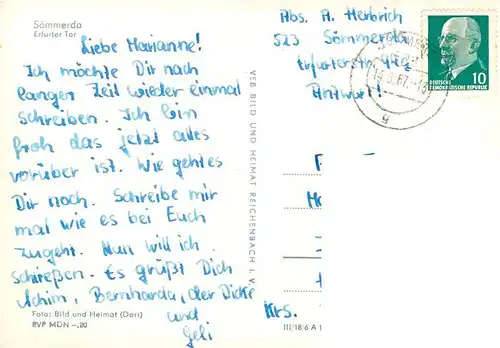 Sömmerda
Erfurter Tor
Liebe Marianne!
Ich möchte Dir nach
langer Zeit wieder einmal
schreiben. Ich bin
froh das jetzt alles
vorüber ist. Wie geht es
Dir noch. Schreibe mir
mal wie es bei Euch
zugeht. Nun will ich
schließen. Es grüßt Dich
Achim, Bernharda, der Dicke
und
Geli
Foto: Bild und Heimat (Darr)
BVP MDN -,20
VEB BILD UND HEIMAT REICHENBACH I. V.
Abs. A. Herbrich
523 Sömmerda
Erfurterstr
Antwort!
DEUTSCHE
DEMOKRATISCHE REPUBLIK
10
Krs.
III/18/6 A 1